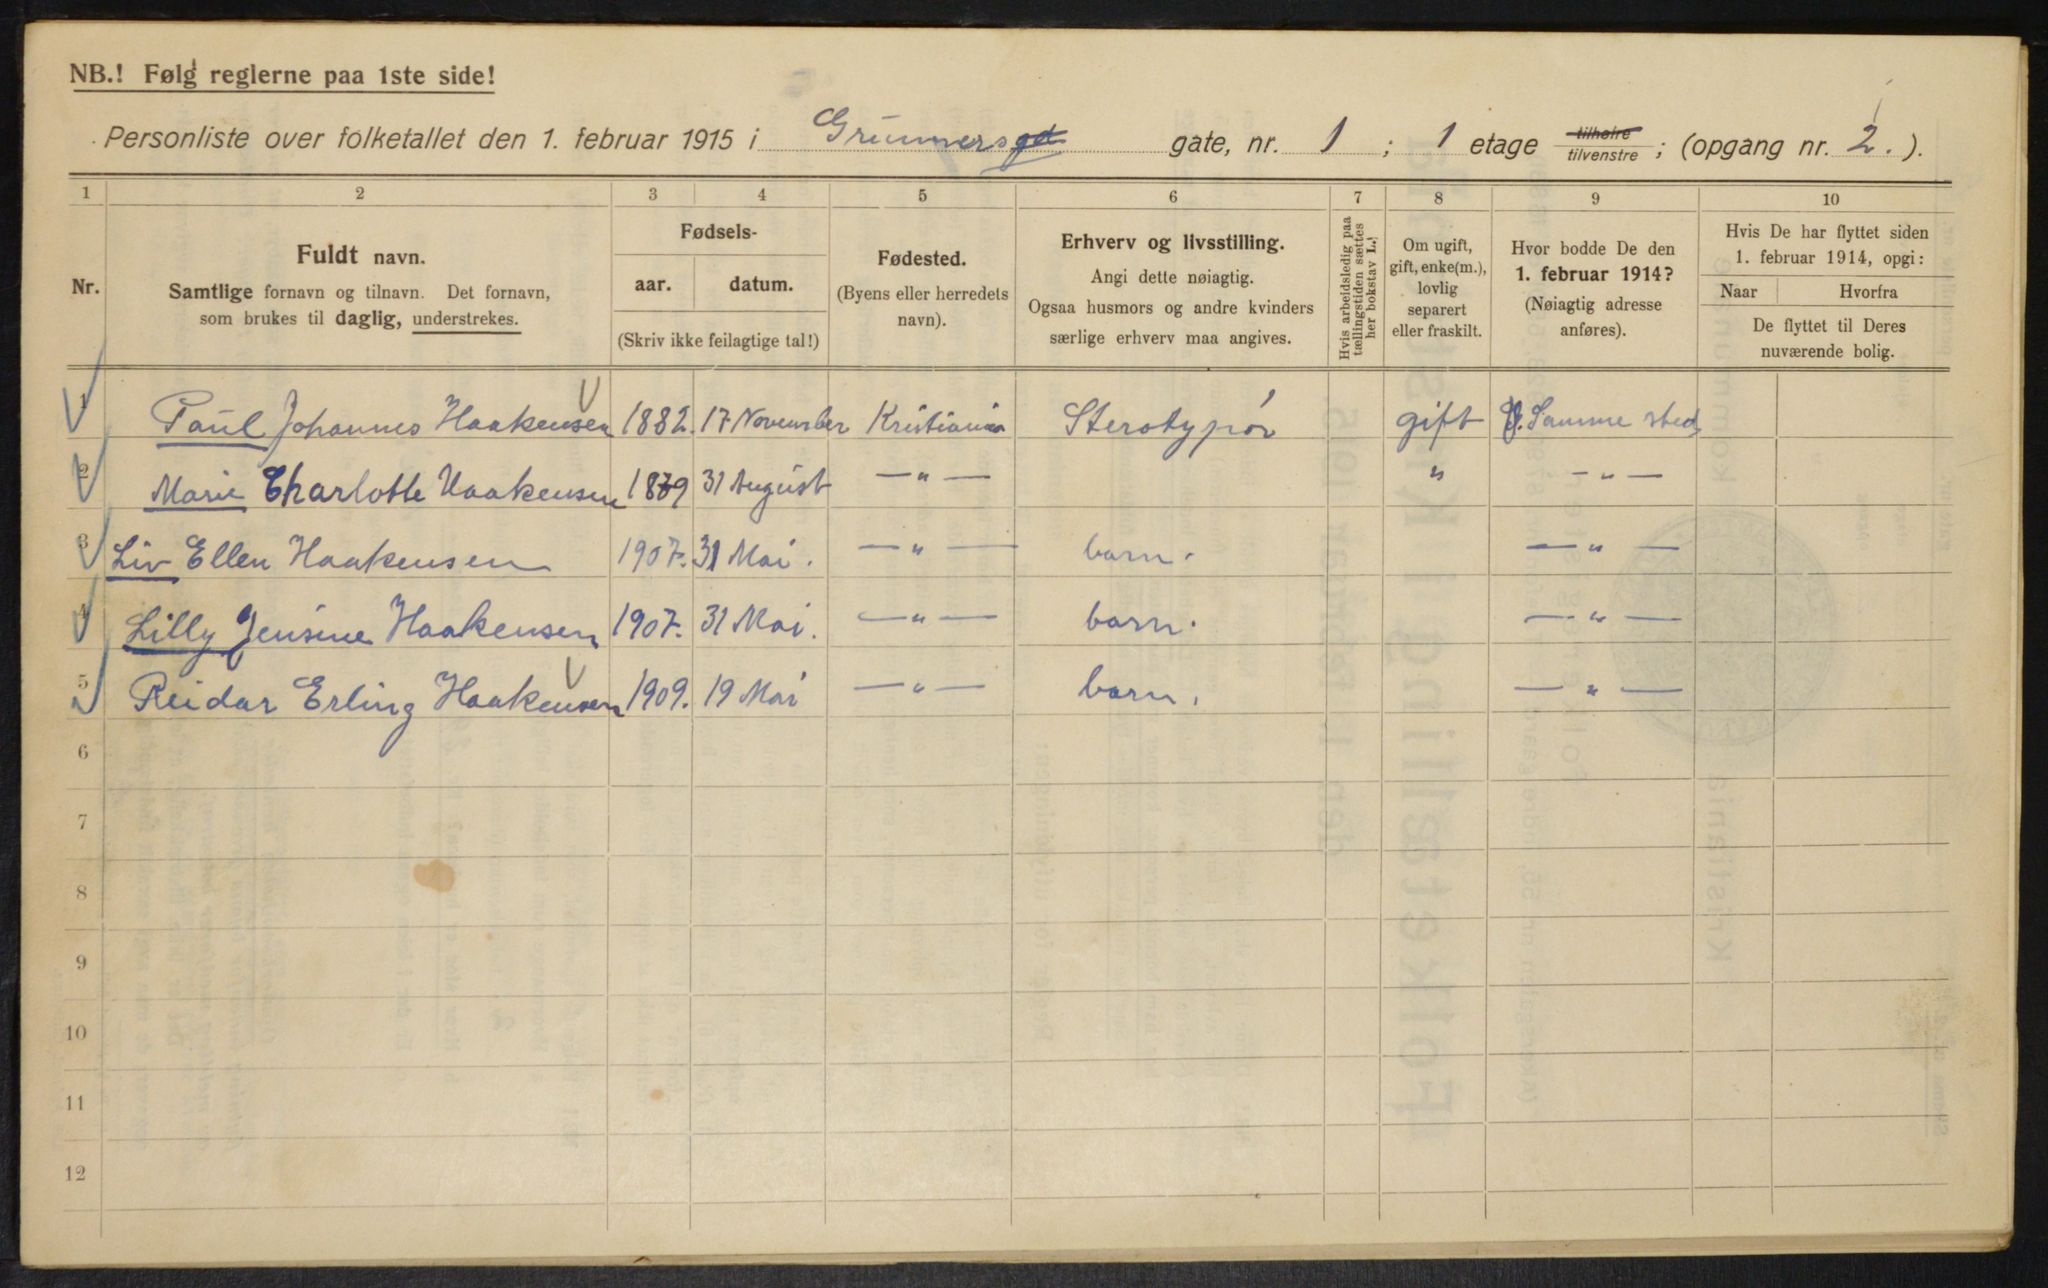 NB.! Følg reglerne paa 1ste side!
Personliste over folketallet den 1. februar 1915 i Grünnersgd gate, nr. 1 ; 1 etage tilhøire tilvenstre ; (opgang nr. 2. ).
1 2 3 4 5 6 7 8 9 10
Nr.
Fuldt navn.
Samtlige fornavn og tilnavn. Det fornavn,
som brukes til daglig, understrekes.
Fødsels-
aar. datum.
(Skriv ikke feilagtige tal!)
Fødested.
(Byens eller herredets
navn).
Erhverv og livsstilling.
Angi dette nøiagtig.
Ogsaa husmors og andre kvinders
særlige erhverv maa angives.
Hvis arbeidsledig paa
tællingstiden sættes
her bokstav L.!
Om ugift,
gift, enke(m.),
lovlig
separert
eller fraskilt.
Hvor bodde De den
1. februar 1914?
(Nøiagtig adresse
anføres).
Hvis De har flyttet siden
1. februar 1914, opgi:
Naar Hvorfra
De flyttet til Deres
nuværende bolig.
1 Paul Johannes Haakensen 1882. 17 November Kristiania Sterotypør gift Samme sted
2 Marie Charlotte Haakensen 1879 31 August — " — " — " —
3 Liv Ellen Haakensen 1907. 31 Mai. — " — barn. — " —
4 Lilly Jensine Haakensen 1907. 31 Mai. — " — barn. — " —
5 Reidar Erling Haakensen 1909. 19 Mai — " — barn. — " —
6
7
8
9
10
11
12